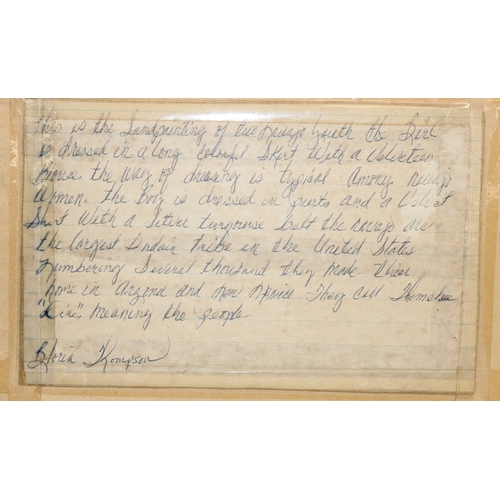 This is the Sandpainting of two Navajo Youth the Girl
is dressed in a long colorful Skirt With a Velveteen
the Way of dressing is typical Among
Women. the Boy is dressed in pants and a Velvet
With a Silver turquoise Belt the navajo are
the largest Indian Tribe in the United States
Numbering Several thousand they made their
home in and New They call Themselves
"Dine" meaning the people
Gloria Thompson